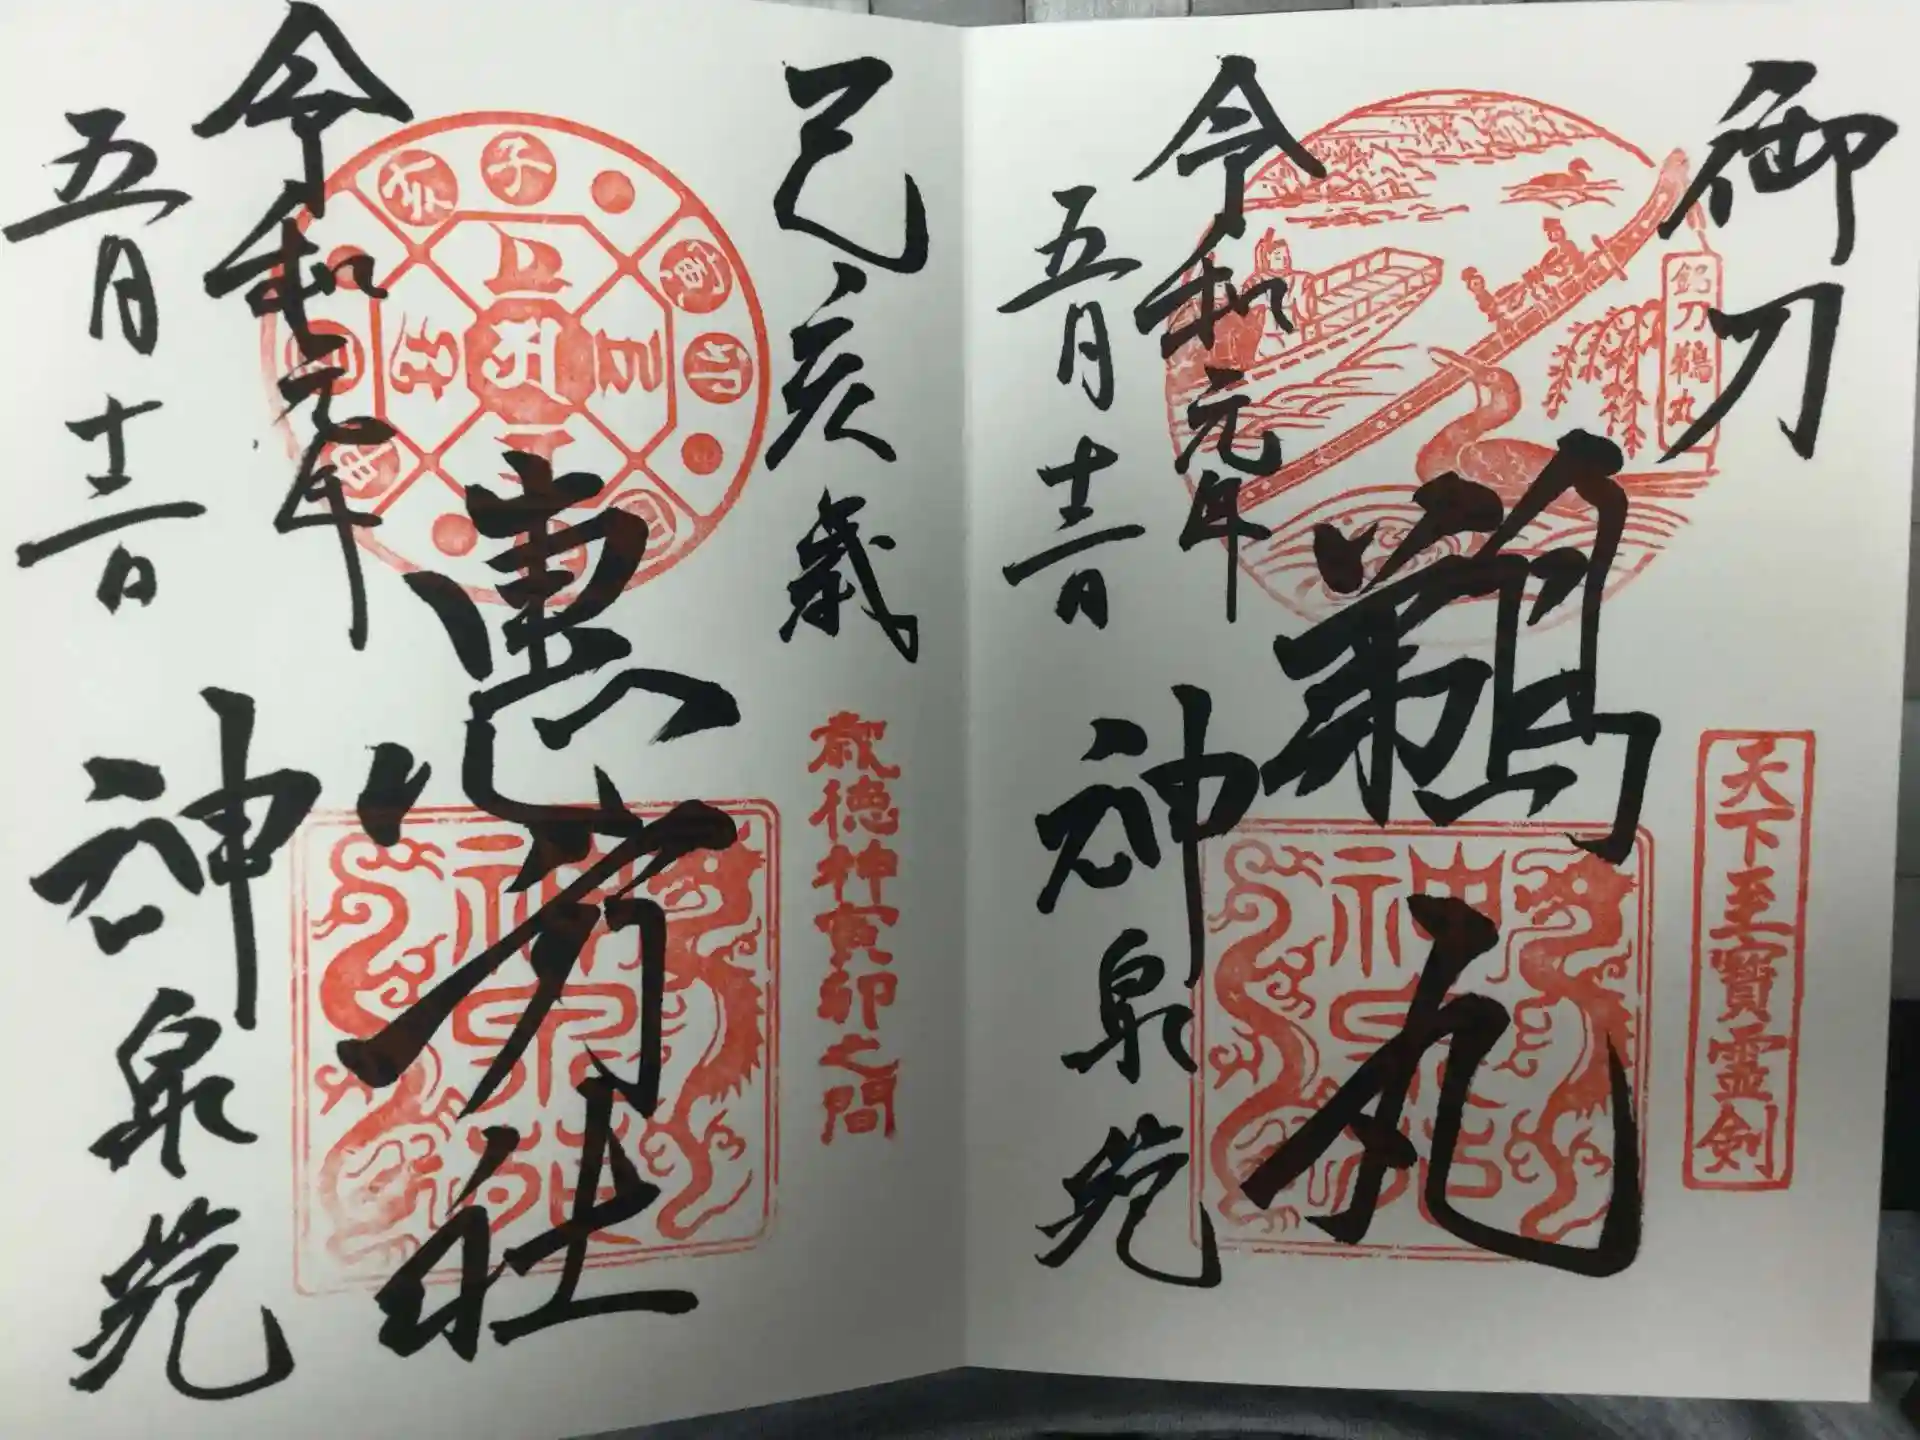 御刀
鵜丸
釼刀鵜丸
天下至寳霊剣
令和元年
五月十二日
神泉苑
己亥歳
歳徳神寅卯之間
恵方社
亥
子
寅
卯
令和元年
五月十二日
神泉苑